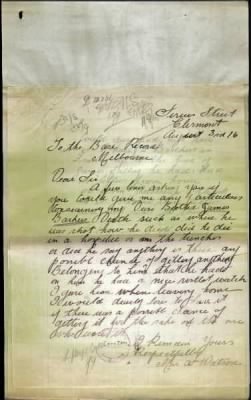 Sirius Street
Clermont
August 3rd 16
To the Base Records
Melbourne
Dear Sir
A few lines asking you if
you could give me any particulars
concerning my Dear Brother James
such as where he
was shot how he died did he die
in a hospital or on the trenches
or did he say anything is there any
possible chance of getting anything
Belonging to him that he had
on him he had a nice wristlet watch
I gave him when leaving home
I would dearly love to have it
if there was a possible chance of
getting it for the sake of the one
who
I Remain Yours
Respectfully
Mrs A Watson